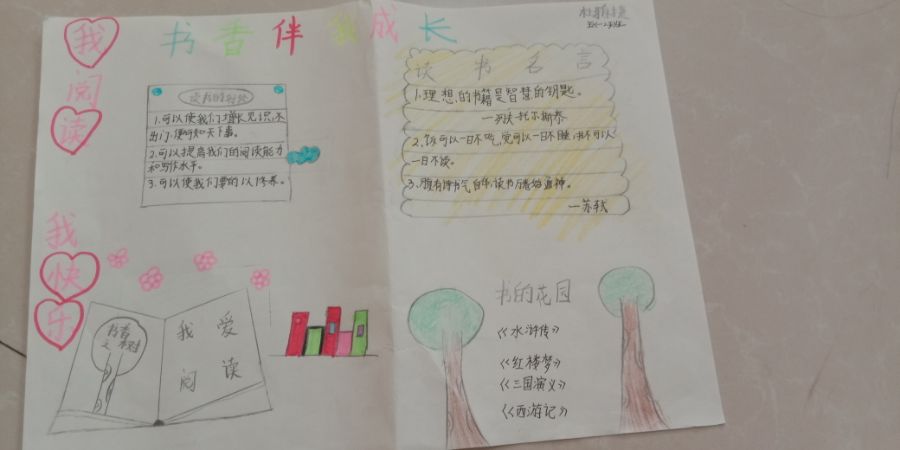 书香伴我成长
我阅读
我快乐
读书的好处
1.可以使我们增长见识,不
出门,便可知天下事。
2.可以提高我们的阅读能力
和写作水平。
3.可以使我们
读书名言
1.理想的书籍是智慧的钥匙。
—列夫·托尔斯泰
2.饭可以一日不吃,觉可以一日不睡,书不可以
一日不读。
3.腹有诗书气自华,读书万卷始通神。
—苏轼
书香
之树
我爱
阅读
书的花园
《水浒传》
《红楼梦》
《三国演义》
《西游记》